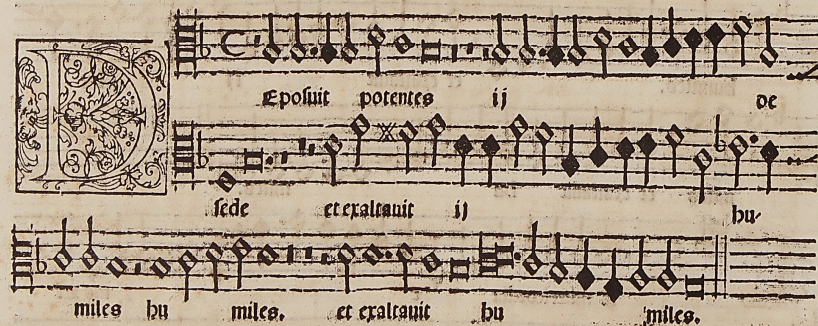 DEposuit potentes ij de
sede et exaltauit ij hu-
miles hu miles. et exaltauit hu miles.